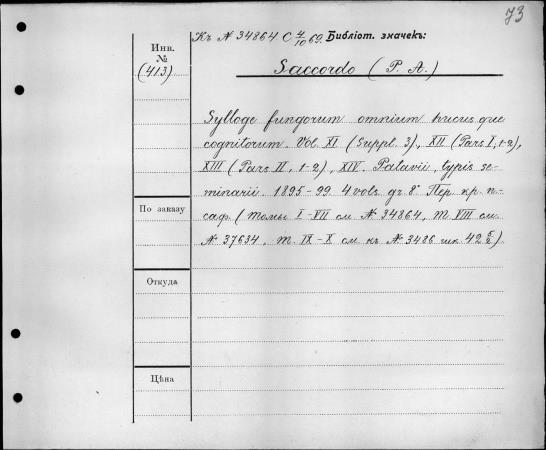 73
Къ № 34864 С 4/10 69. Библіот. значекъ:
Инв.
№
(413)
Saccordo (P. A.)
Sylloge fungorum omnium hucusque
cognitorum. Vol. XI (Suppl. 3), XII (Pars I, 1-2),
XIII (Pars II, 1-2), XIV. Patavii, typis se-
minarii. 1895-99. 4 vols. 8° Пер. кр. п.
саф. (Томы I-VII см № 34864, т. VIII см.
№ 37634, т. IX-X см. къ № 3486 шк 42 5/2)
По заказу
Откуда
Цѣна